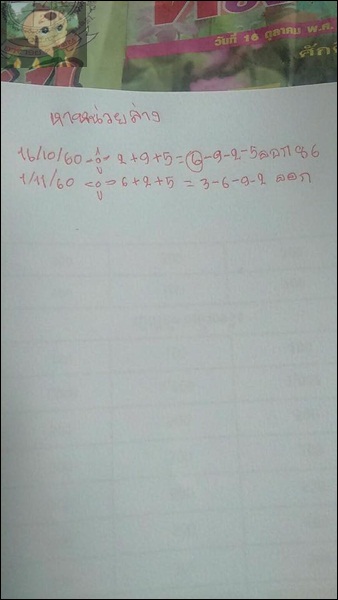 วันที่ 16 ตุลาคม พ.ศ.
หาหน่วยล่าง
16/10/60 2+9+5=6-9-2-5 ออก 86
1/11/60 6+2+5 = 3-6-9-2 ออก